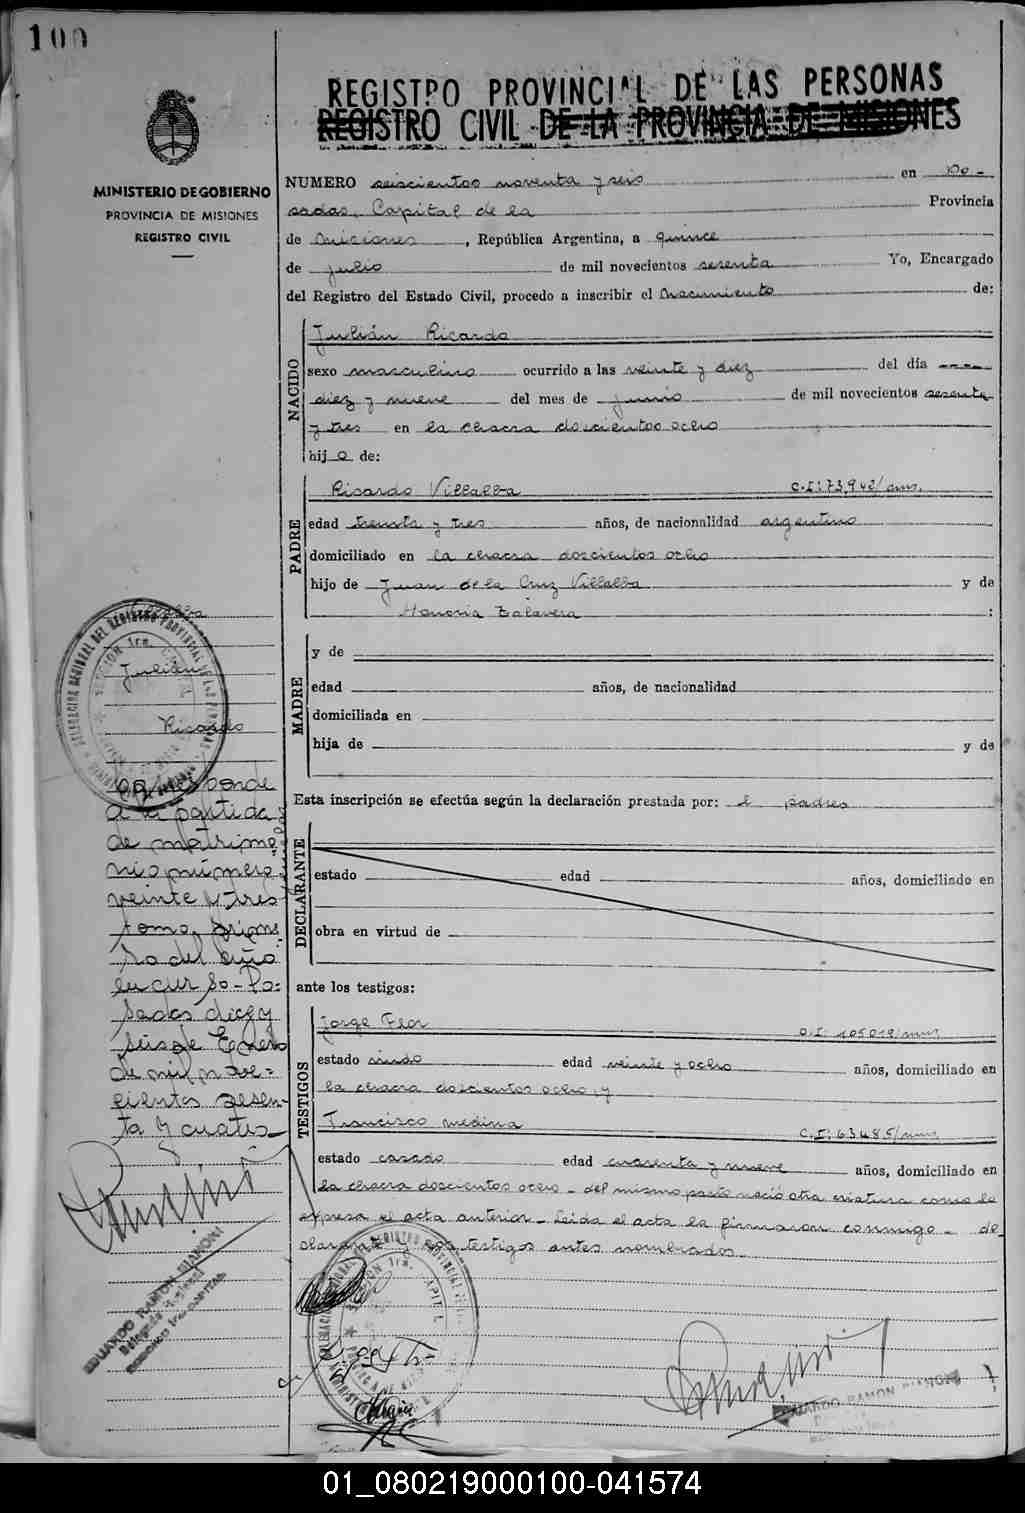 100
REGISTRO PROVINCIAL DE LAS PERSONAS
REGISTRO CIVIL DE LA PROVINCIA DE MISIONES
MINISTERIO DE GOBIERNO
PROVINCIA DE MISIONES
REGISTRO CIVIL
NUMERO seiscientos noventa y seis en Po-
sadas, Capital de la Provincia
de Misiones, República Argentina, a quince
de julio de mil novecientos sesenta Yo, Encargado
del Registro del Estado Civil, procedo a inscribir el Nacimiento de:
NACIDO
Julián Ricardo
sexo masculino ocurrido a las veinte y diez del día
diez y nueve del mes de junio de mil novecientos sesenta
y tres en la chacra doscientos ocho
hijo de:
PADRE
Ricardo Villalba C.I: 73.942/mns.
edad treinta y tres años, de nacionalidad argentino
domiciliado en la chacra doscientos ocho
hijo de Juan de la Cruz Villalba y de
Honoria Talavera :
MADRE
y de
edad años, de nacionalidad
domiciliada en
hija de y de
Esta inscripción se efectúa según la declaración prestada por: el padre
DECLARANTE
estado edad años, domiciliado en
obra en virtud de
ante los testigos:
TESTIGOS
Jorge Flor
estado viudo edad veinte y ocho años, domiciliado en
la chacra doscientos ocho, y
Francisco Medina C.I: 63485/mns
estado casado edad cuarenta y nueve años, domiciliado en
la chacra doscientos ocho - del mismo parto nació otra criatura como lo
expresa el acta anterior - Leída el acta la firmaron conmigo - de-
clarante y testigos antes nombrados.
Villalba
Julián
Ricardo
Corresponde
a la partida
de matrimo
nio número
veinte y tres
tomo prime
ro del año
en curso - Po-
sadas diez y
seis de Enero
de mil nove-
cientos sesen-
ta y cuatro
EDUARDO RAMON BIANCHI
EDUARDO RAMON BIANCHI
01_080219000100-041574